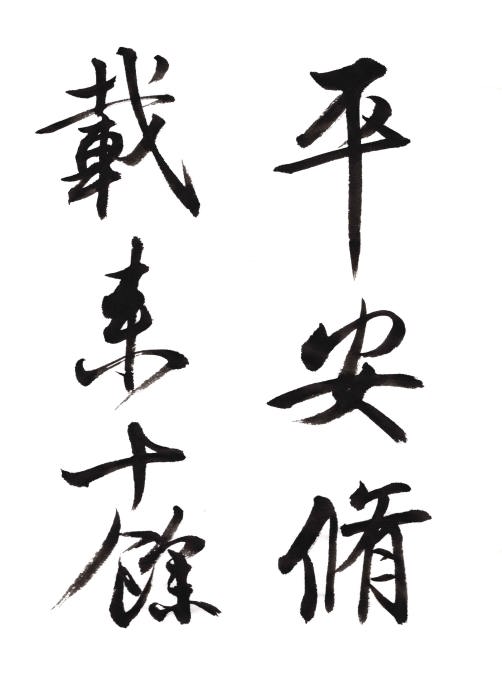 平安脩
載来十餘